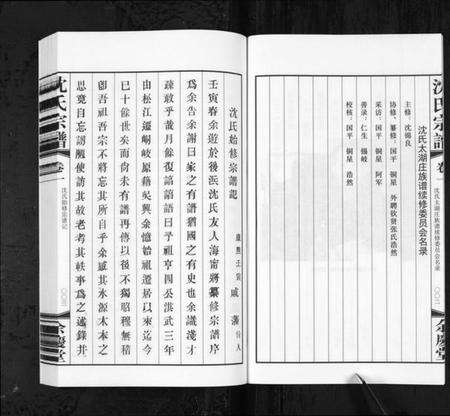 沈氏宗譜
卷一
沈氏太湖庄族譜续修委员会名录
〇〇二
余慶堂
沈氏太湖庄族谱续修委员会名录
主修：沈锡良
协修、纂修：国平 铜星 外聘钦贤张氏浩然
采访：国平 铜星 阿军
善录：仁生 锡岐
校核：国平 铜星 浩然
沈氏始修宗譜記
康熙壬寅 戚藩 价人
壬寅春余遊於後浜沈氏友人海甯蔣纂修宗譜序
為余告余謝曰家之有譜猶國之有史也余譾淺才
疎敢乎哉月餘復詒語語曰乎祖亨四公洪武三年
由松江遷峒岐原籍吳興余憶始祖遷居以來迄今
已十餘世矣而尚未有譜再傳以後不獨昭穆無稽
卽吾祖吾宗不將忘其所自乎余感其水源木本之
思竟自忘譾陋使訪其故老考其軼事為之述錄并
沈氏宗譜
卷一
沈氏始修宗譜记
〇〇三
余慶堂